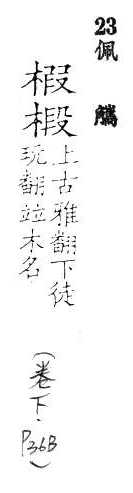 23
佩觿
椵椴
上古雅翻下徒
玩翻竝木名
(卷下. P36B)